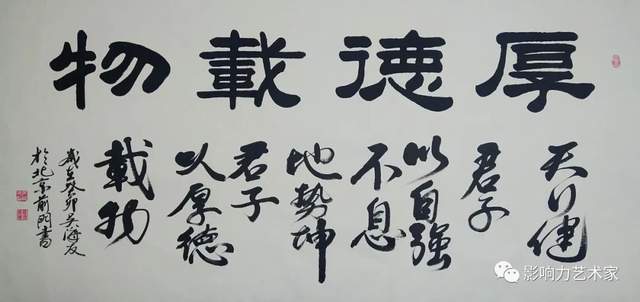 厚德載物
天行健
君子
以自强
不息
地勢坤
君子
以厚德
載物
歲在癸卯吴海友
於北京前門書
影响力艺术家